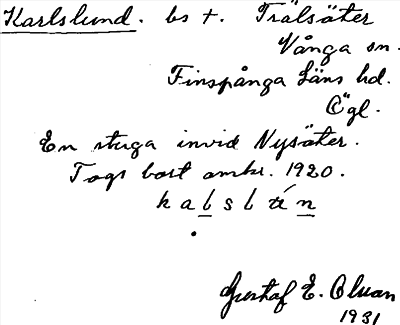 Karlslund. bs †. Trälsäter
Vånga sn.
Finspånga Läns hd.
Ögl.
En stuga invid Nysäter.
Togs bort omkr. 1920.
Gustaf E.
1931